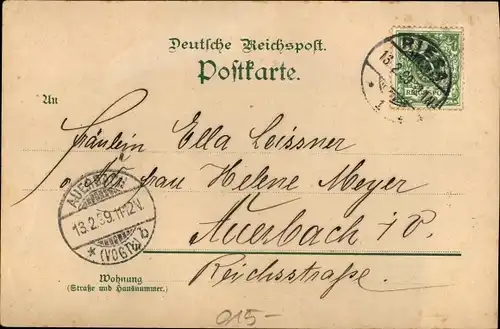 Deutsche Reichspost.
Postkarte.
RIESA
13.2.99
1
An
Fräulein Ella Leissner
Frau Helene Meyer
Auerbach i V.
Reichsstraße.
AUERBACH
13.2.99.11-12V.
* (VOGTL.)
Wohnung
(Straße und Hausnummer.)
915-